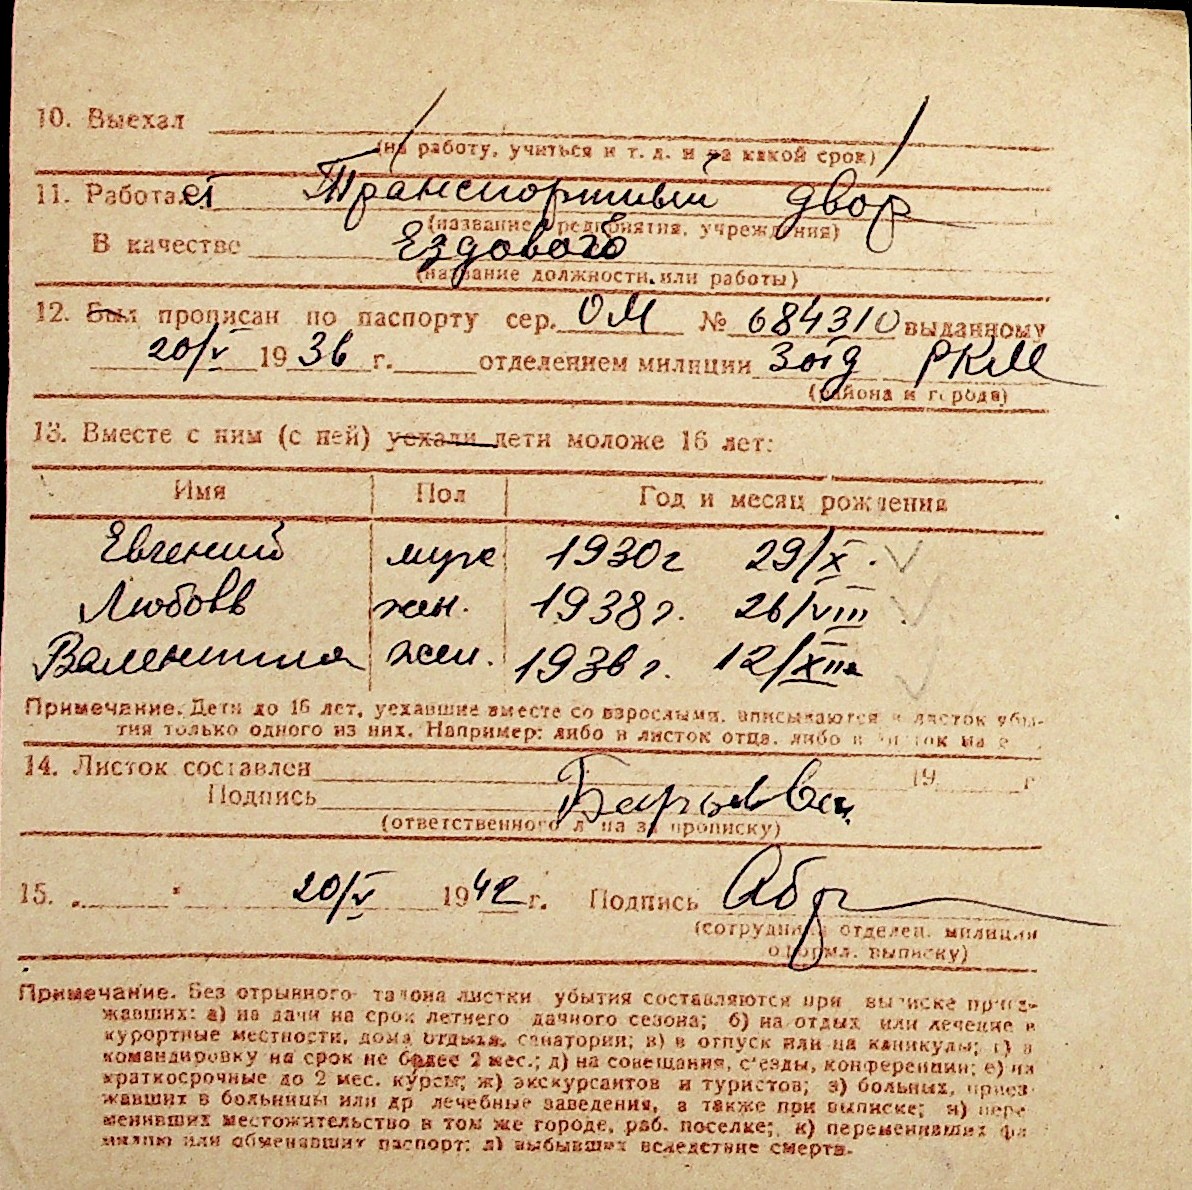 10. Выехал
(на работу, учиться и т. д. и на какой срок)
11. Работает Транспортный двор
(название предприятия, учреждения)
В качестве Ездового
(название должности или работы)
12. Был прописан по паспорту сер. ОМ № 684310 выданному
20/V 1936 г. отделением милиции РКМ
(района и города)
13. Вместе с ним (с ней) уехали дети моложе 16 лет:
Имя Пол Год и месяц рождения
Евгений муж 1930 г 29/X.
Любовь жен. 1938 г. 26/VIII
Валентина жен. 1936 г. 12/XII
Примечание. Дети до 16 лет, уехавшие вместе со взрослыми, вписываются в листок убы-
тия только одного из них. Например: либо в листок отца, либо в листок
14. Листок составлен 19 г
Подпись
(ответственного лица за прописку)
15. „ " 20/V 1942 г. Подпись
(сотрудника отделен. милиции
оформл. выписку)
Примечание. Без отрывного талона листки убытия составляются при выписке приез-
жавших: а) на дачи на срок летнего дачного сезона; б) на отдых или лечение в
курортные местности, дома отдыха, санатории; в) в отпуск или на каникулы; г) в
командировку на срок не более 2 мес.; д) на совещания, с'езды, конференции; е) на
краткосрочные до 2 мес. курсы; ж) экскурсантов и туристов; з) больных, приез-
жавших в больницы или др лечебные заведения, а также при выписке; и) пере
менивших местожительство в том же городе, раб. поселке; к) переменивших фа
милию или обменявших паспорт; л) выбывших вследствие смерти.